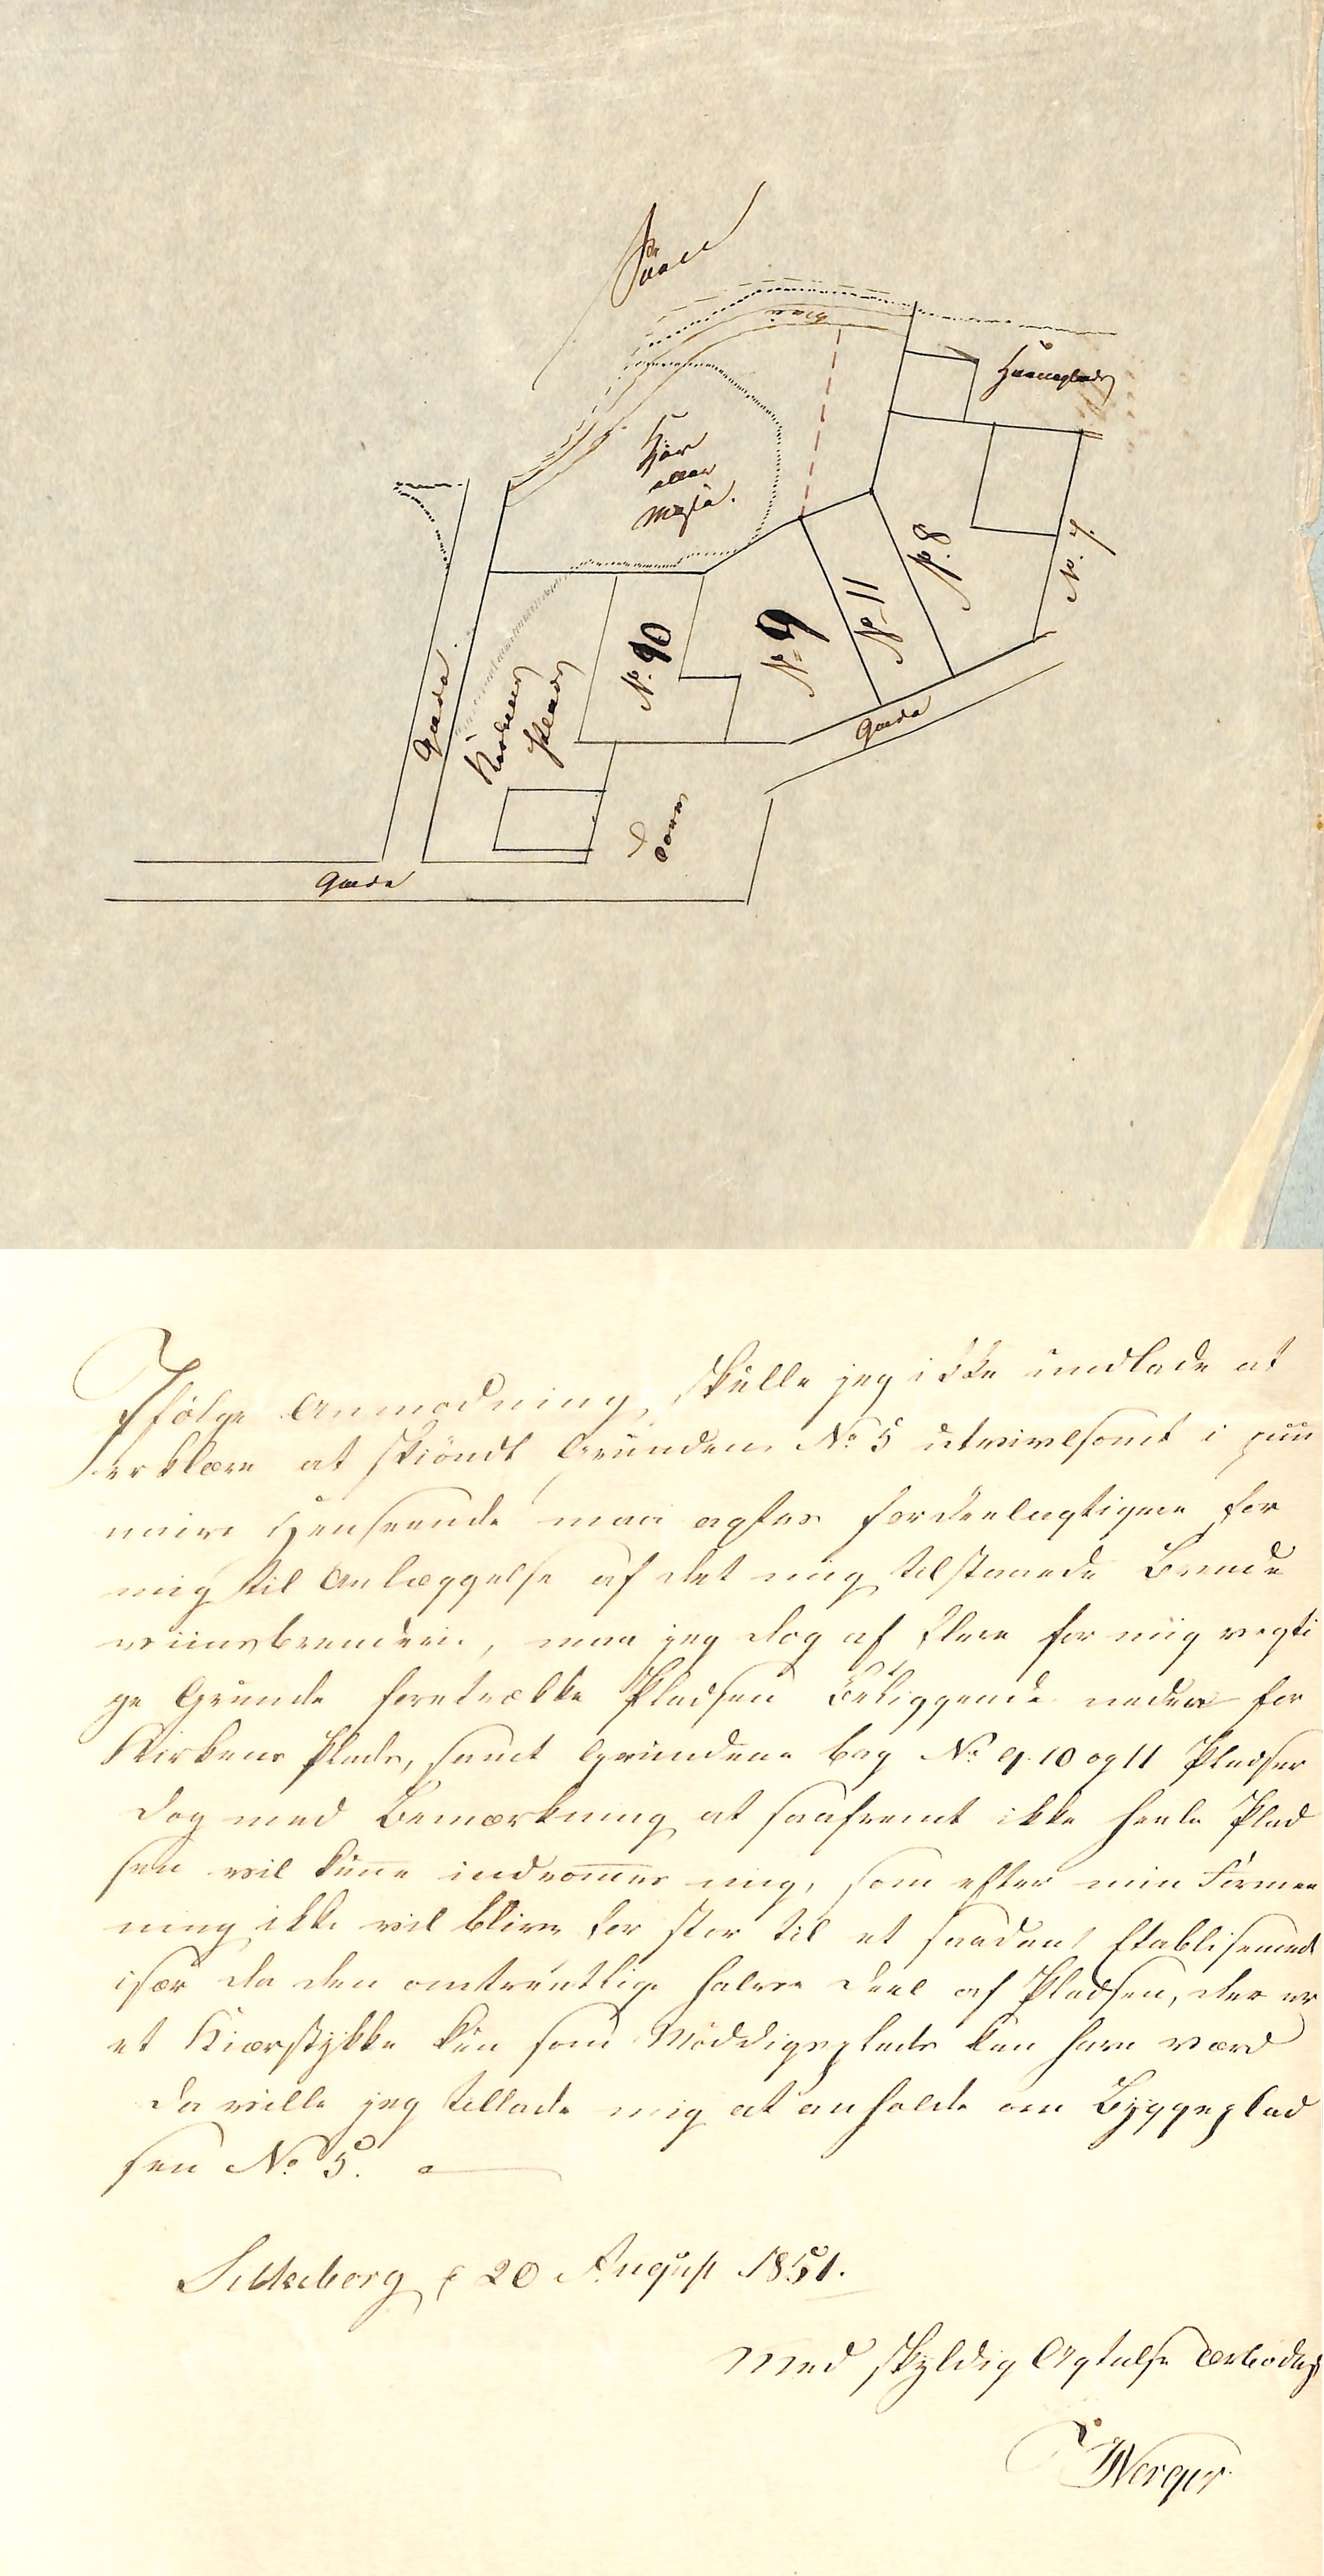 Søen
Vej
Havneplads
Kjær
eller
Mose.
No. 8
No. 7.
No. 11
No. 9
No. 10
Gade
Kirkens
Plads
Gade
Torv
Gade
Ifølge Anmodning, skulle jeg ikke undlade at
erklære at skiöndt Grunden No 5 utvivlsomt i pecu
niair Henseende maa agtes fordeelagtigere for
mig til Anlæggelse af det mig tilstaaede Brende
viinsbrenderi, maa jeg dog af flere for mig vegti
ge Grunde foretrække Pladsen beliggende neden for
Kirkens Plads, samt Grundene bag No 9. 10 og 11 Pladser
dog med Bemærkning at saafremt ikke heele Plad
sen vil kunne indrømmes mig, som efter min Formee
ning ikke vil blive for stor til et saadant Etablisement
især da den omtrentlige halve Deel af Pladsen, der er
et Kiærstykke kun som Møddigsplads kan have værd
da ville jeg tillade mig at anholde om Byggeplad
sen No 5.
Silkeborg d 20 August 1851.
Med skyldig Agtelse ærbødigst
Werger